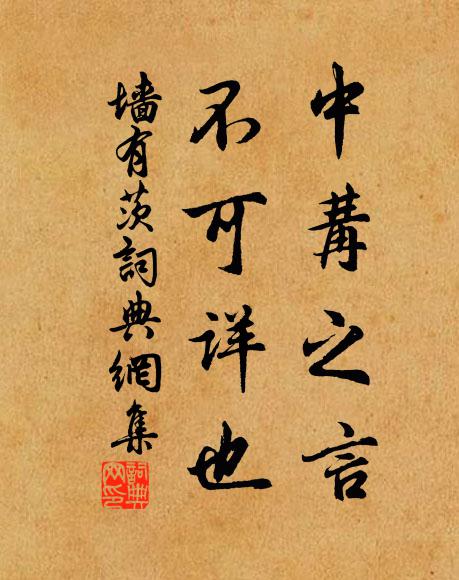 中冓之言
不可详也
墙有茨詞典網集
詞典
网印